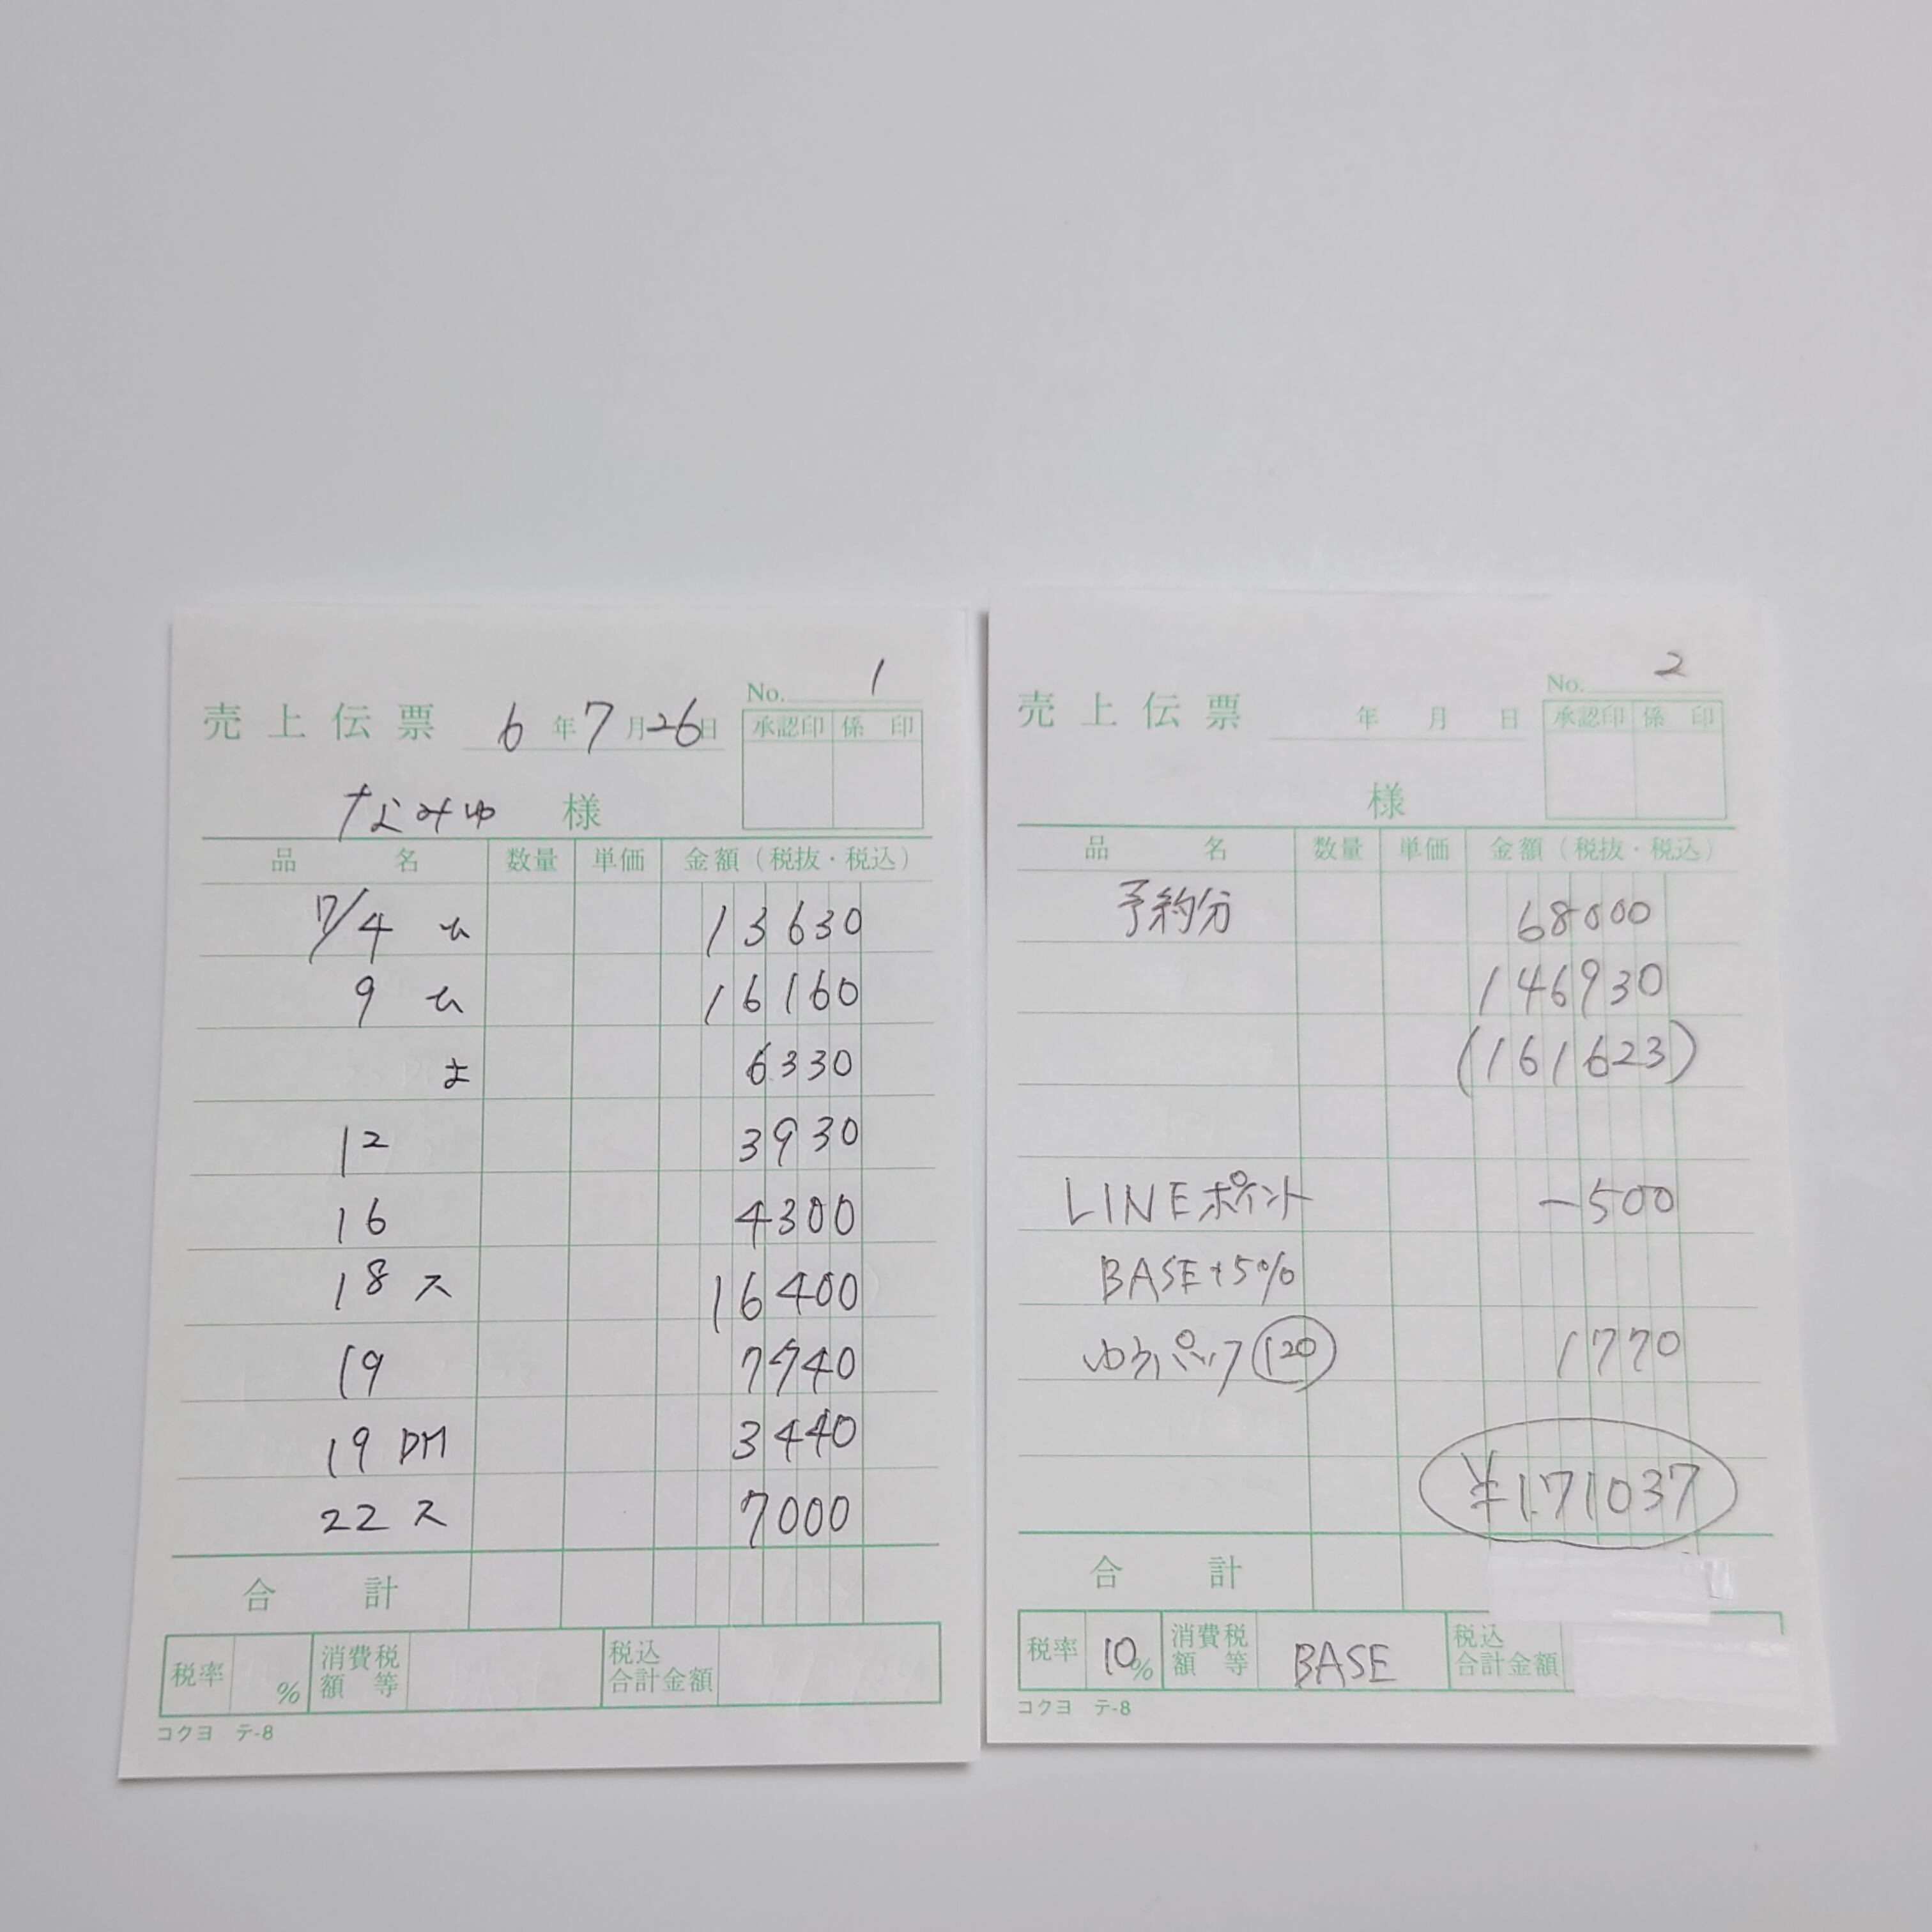 No. 1
売上伝票 6年7月26日
承認印 係印
なみゆ 様
品名 数量 単価 金額（税抜・税込）
7/4 13630
9 16160
よ 6330
12 3930
16 4300
18 ス 16400
19 7740
19 DM 3440
22 ス 7000
合計
税率 % 消費税額等 税込合計金額
コクヨ テ-8
No. 2
売上伝票 年 月 日
承認印 係印
様
品名 数量 単価 金額（税抜・税込）
予約分 68000
146930
(161623)
LINEポイント -500
BASE+5%
ゆうパック 120 1770
¥171037
合計
税率 10% 消費税額等 BASE 税込合計金額
コクヨ テ-8